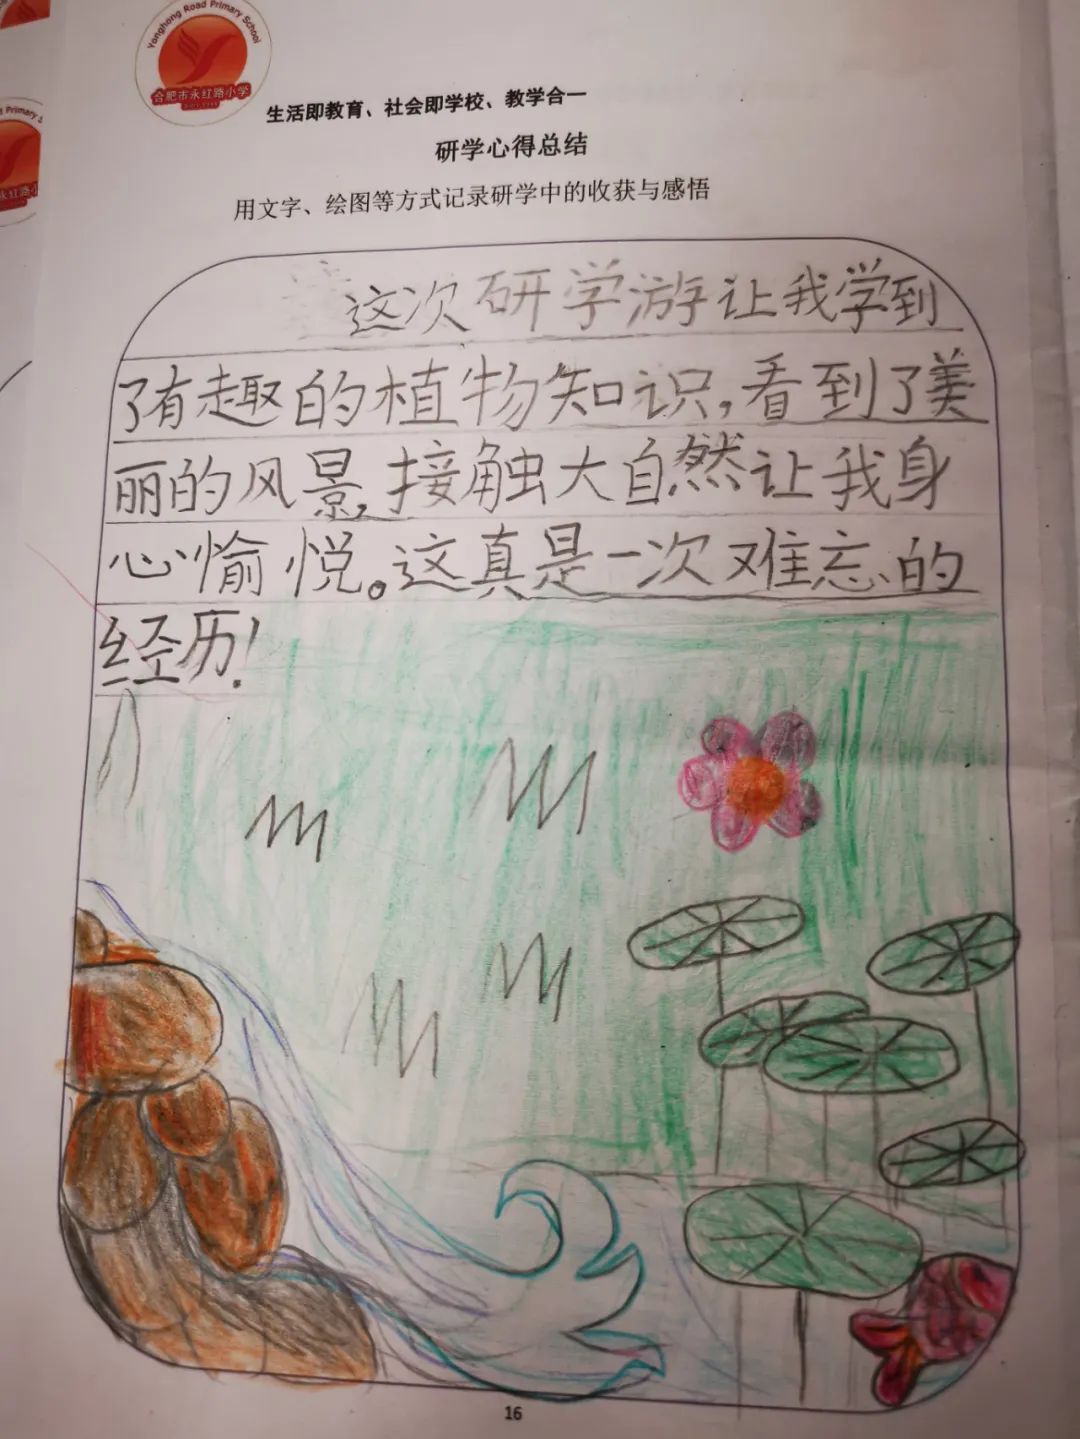 Yonghong Road Primary School
合肥市永红路小学
生活即教育、社会即学校、教学合一
研学心得总结
用文字、绘图等方式记录研学中的收获与感悟
这次研学游让我学到
了有趣的植物知识,看到了美
丽的风景,接触大自然让我身
心愉悦。这真是一次难忘的
经历!
16